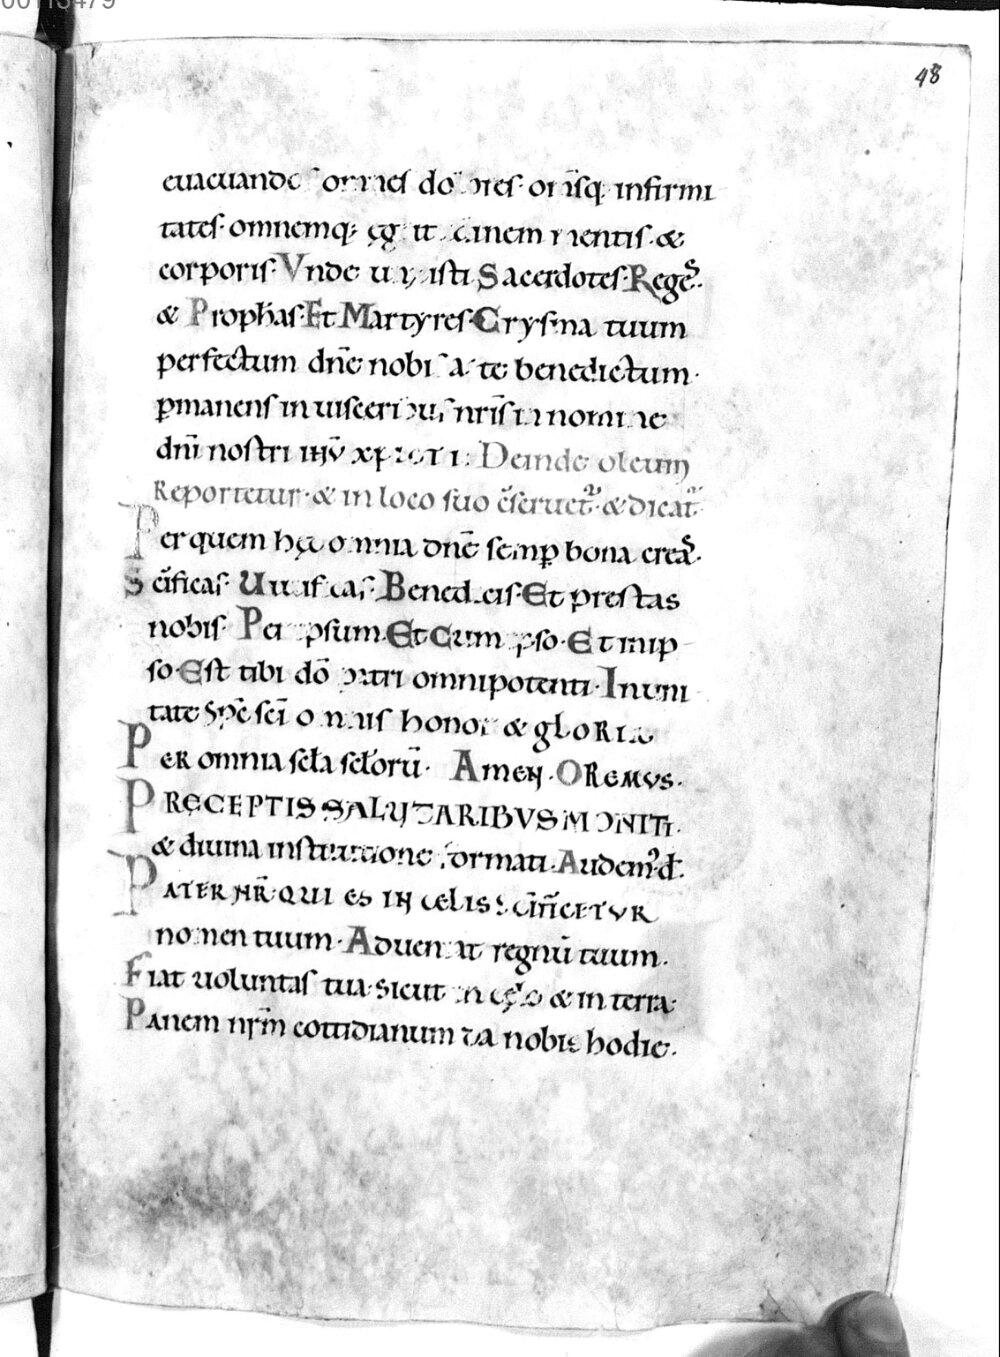 00113479
48
euacuando omnes dolores. omīsq. infirmi
tates. omnemq; ęgritudinem mentis. &
corporis. Vnde unxisti Sacerdotes. Regēs.
& Prophas. Et Martyres. Crysma tuum
perfectum dnē nobis a te benedictum.
pmanens in uisceribus nrīs in nomine
dnī nostri ihū xpicti: Deinde oleum
Reportetur. & in loco suo & dicat
Per quem hęc omnia dnē semp bona creas.
Scīficas. Uiuificas. Benedicis. Et prestas
nobis. Per ipsum. Et Cum ipso. Et in ip
so. Est tibi dō patri omnipotenti. In uni
tate Spē scī omnis honor & gloria
PER omnia scła scłorū. Amen. OREMVS.
PRĘCEPTIS SALUTARIBVS MONITI.
& diuina institutione formati. Audem d.
PATER NR̄. QUI ES IN CELIS: SCĪFICETVR
nomen tuum. Adueniat regnū tuum.
Fiat uoluntas tua. sicut in cęlo & in terra.
Panem nrm cottidianum da nobis hodie.